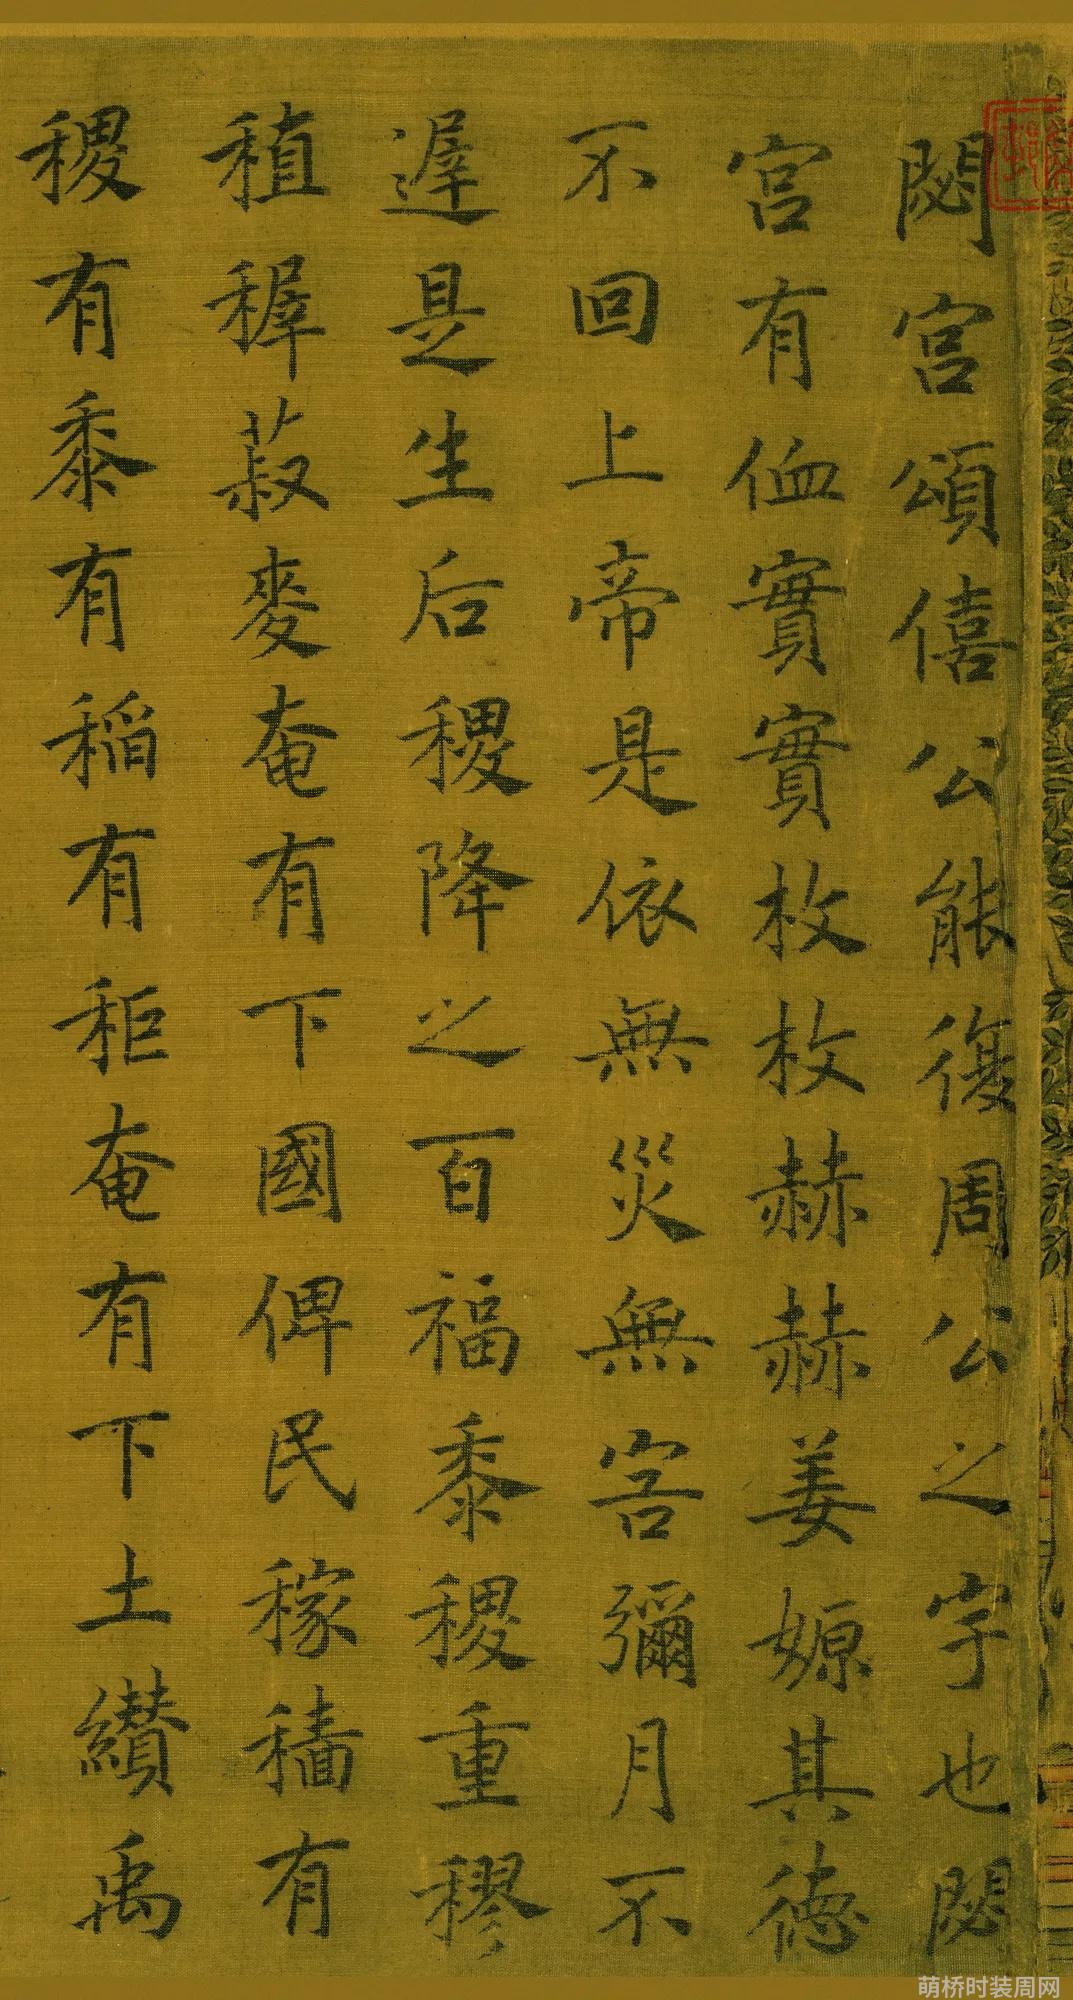 閟宮頌僖公能復周公之宇也閟
宮有侐實實枚枚赫赫姜嫄其德
不回上帝是依無災無害彌月不
遟是生后稷降之百福黍稷重穋
稙稺菽麥奄有下國俾民稼穡有
稷有黍有稻有秬奄有下土纘禹
萌桥时装周网